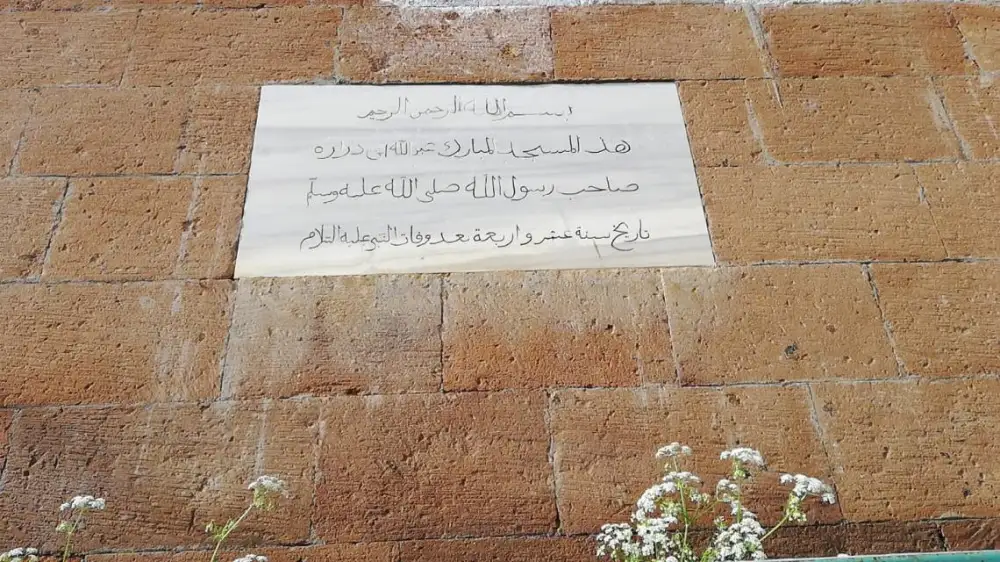 بسم الله الرحمن الرحيم
هذ المسجد المبارك عبد الله ابن دراره
صاحب رسول الله صلى الله عليه وسلم
تاريخ سنة عشر و اربعة بعد وفات النبي عليه السلام